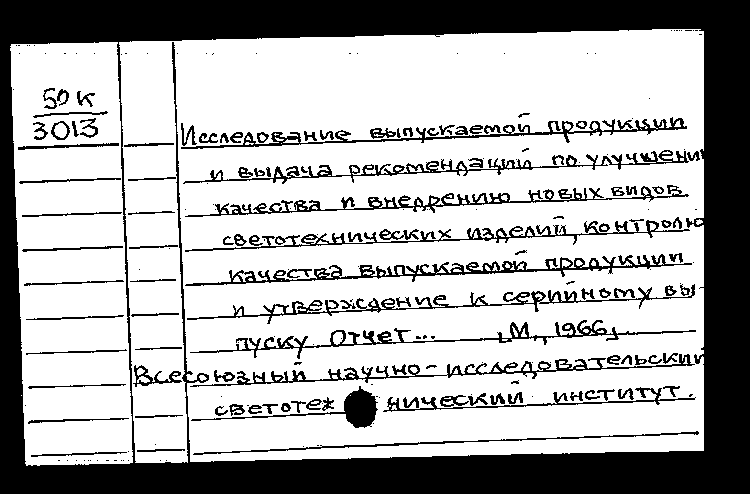 50К
3013
Исследование выпускаемой продукции
и выдача рекомендаций по улучшению
качества и внедрению новых видов
светотехнических изделий, контролю
качества выпускаемой продукции
и утверждение к серийному вы-
пуску Отчет... [М., 1966].
Всесоюзный научно-исследовательский
светотехнический институт.